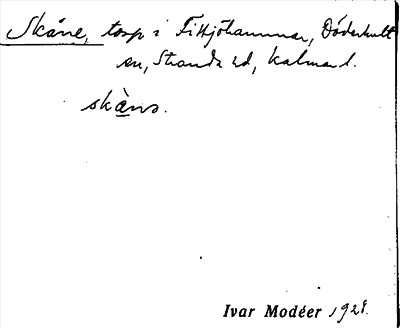 Skåne, torp i Fittjöhammar, Döderhult
sn, Strands hd, Kalmar l.
skåns.
Ivar Modéer 1928.